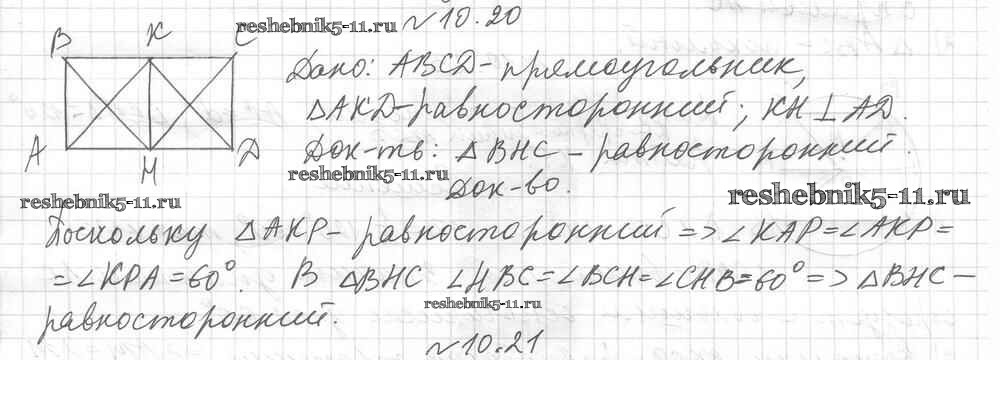 №10.20
reshebnik5-11.ru
B K C
A H D
Дано: ABCD - прямоугольник,
△AKD - равносторонний; KH ⊥ AD.
Док-ть: △BHC - равносторонний.
reshebnik5-11.ru
Док-во.
reshebnik5-11.ru
reshebnik5-11.ru
Поскольку △AKP - равносторонний => ∠KAP = ∠AKP =
= ∠KPA = 60°. В △BHC ∠HBC = ∠BCH = ∠CHB = 60° => △BHC -
reshebnik5-11.ru
равносторонний.
№10.21